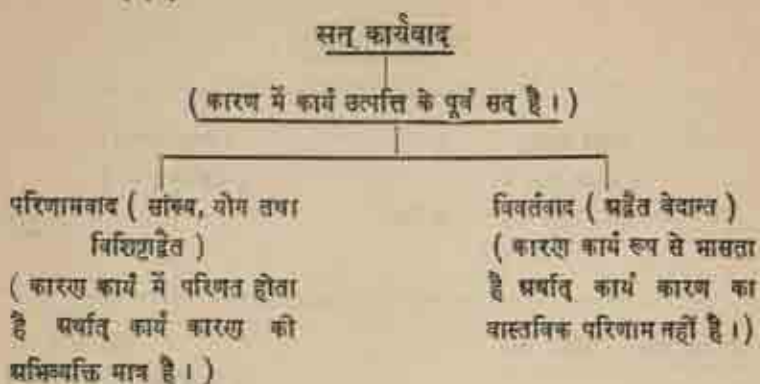 सत् कार्यवाद
( कारण में कार्य उत्पत्ति के पूर्व सत् है । )
परिणामवाद ( सांख्य, योग तथा
विशिष्टाद्वैत )
( कारण कार्य में परिणत होता
है अर्थात् कार्य कारण की
अभिव्यक्ति मात्र है । )
विवर्तवाद ( अद्वैत वेदान्त )
( कारण कार्य रूप से भासता
है अर्थात् कार्य कारण का
वास्तविक परिणाम नहीं है । )